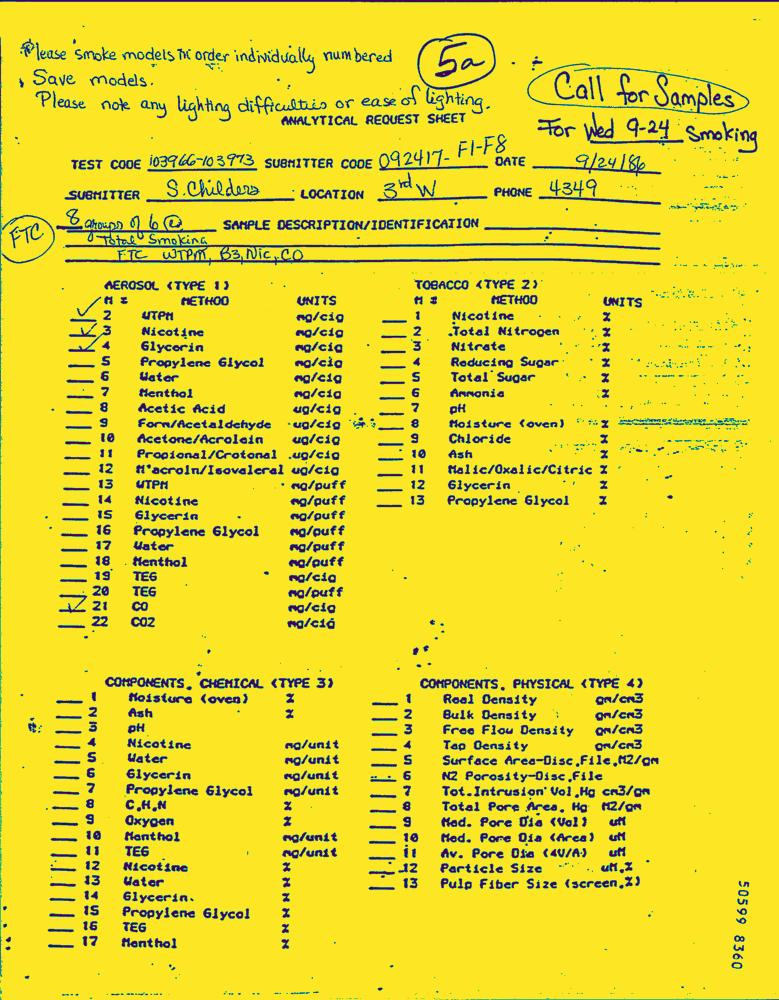 Please smoke models in order individually numbered
5a
Save models.
Please note any lighting difficulties or ease of lighting.
Call for Samples
For Wed 9-24 Smoking
ANALYTICAL REQUEST SHEET
TEST CODE 103966-103973 SUBMITTER CODE 092417- F1-F8 DATE 9/24/86
SUBMITTER S. Childers LOCATION 3rd W PHONE 4349
FTC
8 groups of 6 SAMPLE DESCRIPTION/IDENTIFICATION
Total Smoking
FTC WTPM, B3, Nic, CO
AEROSOL (TYPE 1)
M # METHOD UNITS
2 WTPM mg/cig
3 Nicotine mg/cig
4 Glycerin mg/cig
5 Propylene Glycol mg/cig
6 Water mg/cig
7 Menthol mg/cig
8 Acetic Acid ug/cig
9 Form/Acetaldehyde ug/cig
10 Acetone/Acrolein ug/cig
11 Propional/Crotonal ug/cig
12 M'acroln/Isovaleral ug/cig
13 WTPM mg/puff
14 Nicotine mg/puff
15 Glycerin mg/puff
16 Propylene Glycol mg/puff
17 Water mg/puff
18 Menthol mg/puff
19 TEG mg/cig
20 TEG mg/puff
21 CO mg/cig
22 CO2 mg/cig
TOBACCO (TYPE 2)
M # METHOD UNITS
1 Nicotine %
2 Total Nitrogen %
3 Nitrate %
4 Reducing Sugar %
5 Total Sugar %
6 Ammonia %
7 pH
8 Moisture (oven) %
9 Chloride %
10 Ash %
11 Malic/Oxalic/Citric %
12 Glycerin %
13 Propylene Glycol %
COMPONENTS, CHEMICAL (TYPE 3)
1 Moisture (oven) %
2 Ash %
3 pH
4 Nicotine mg/unit
5 Water mg/unit
6 Glycerin mg/unit
7 Propylene Glycol mg/unit
8 C,H,N %
9 Oxygen %
10 Menthol mg/unit
11 TEG mg/unit
12 Nicotine %
13 Water %
14 Glycerin %
15 Propylene Glycol %
16 TEG %
17 Menthol %
COMPONENTS, PHYSICAL (TYPE 4)
1 Real Density gm/cm3
2 Bulk Density gm/cm3
3 Free Flow Density gm/cm3
4 Tap Density gm/cm3
5 Surface Area-Disc,File,M2/gm
6 N2 Porosity-Disc,File
7 Tot.Intrusion Vol,Hg cm3/gm
8 Total Pore Area, Hg M2/gm
9 Med. Pore Dia (Vol) uM
10 Med. Pore Dia (Area) uM
11 Av. Pore Dia (4V/A) uM
12 Particle Size uM,%
13 Pulp Fiber Size (screen,%)
50599 8360